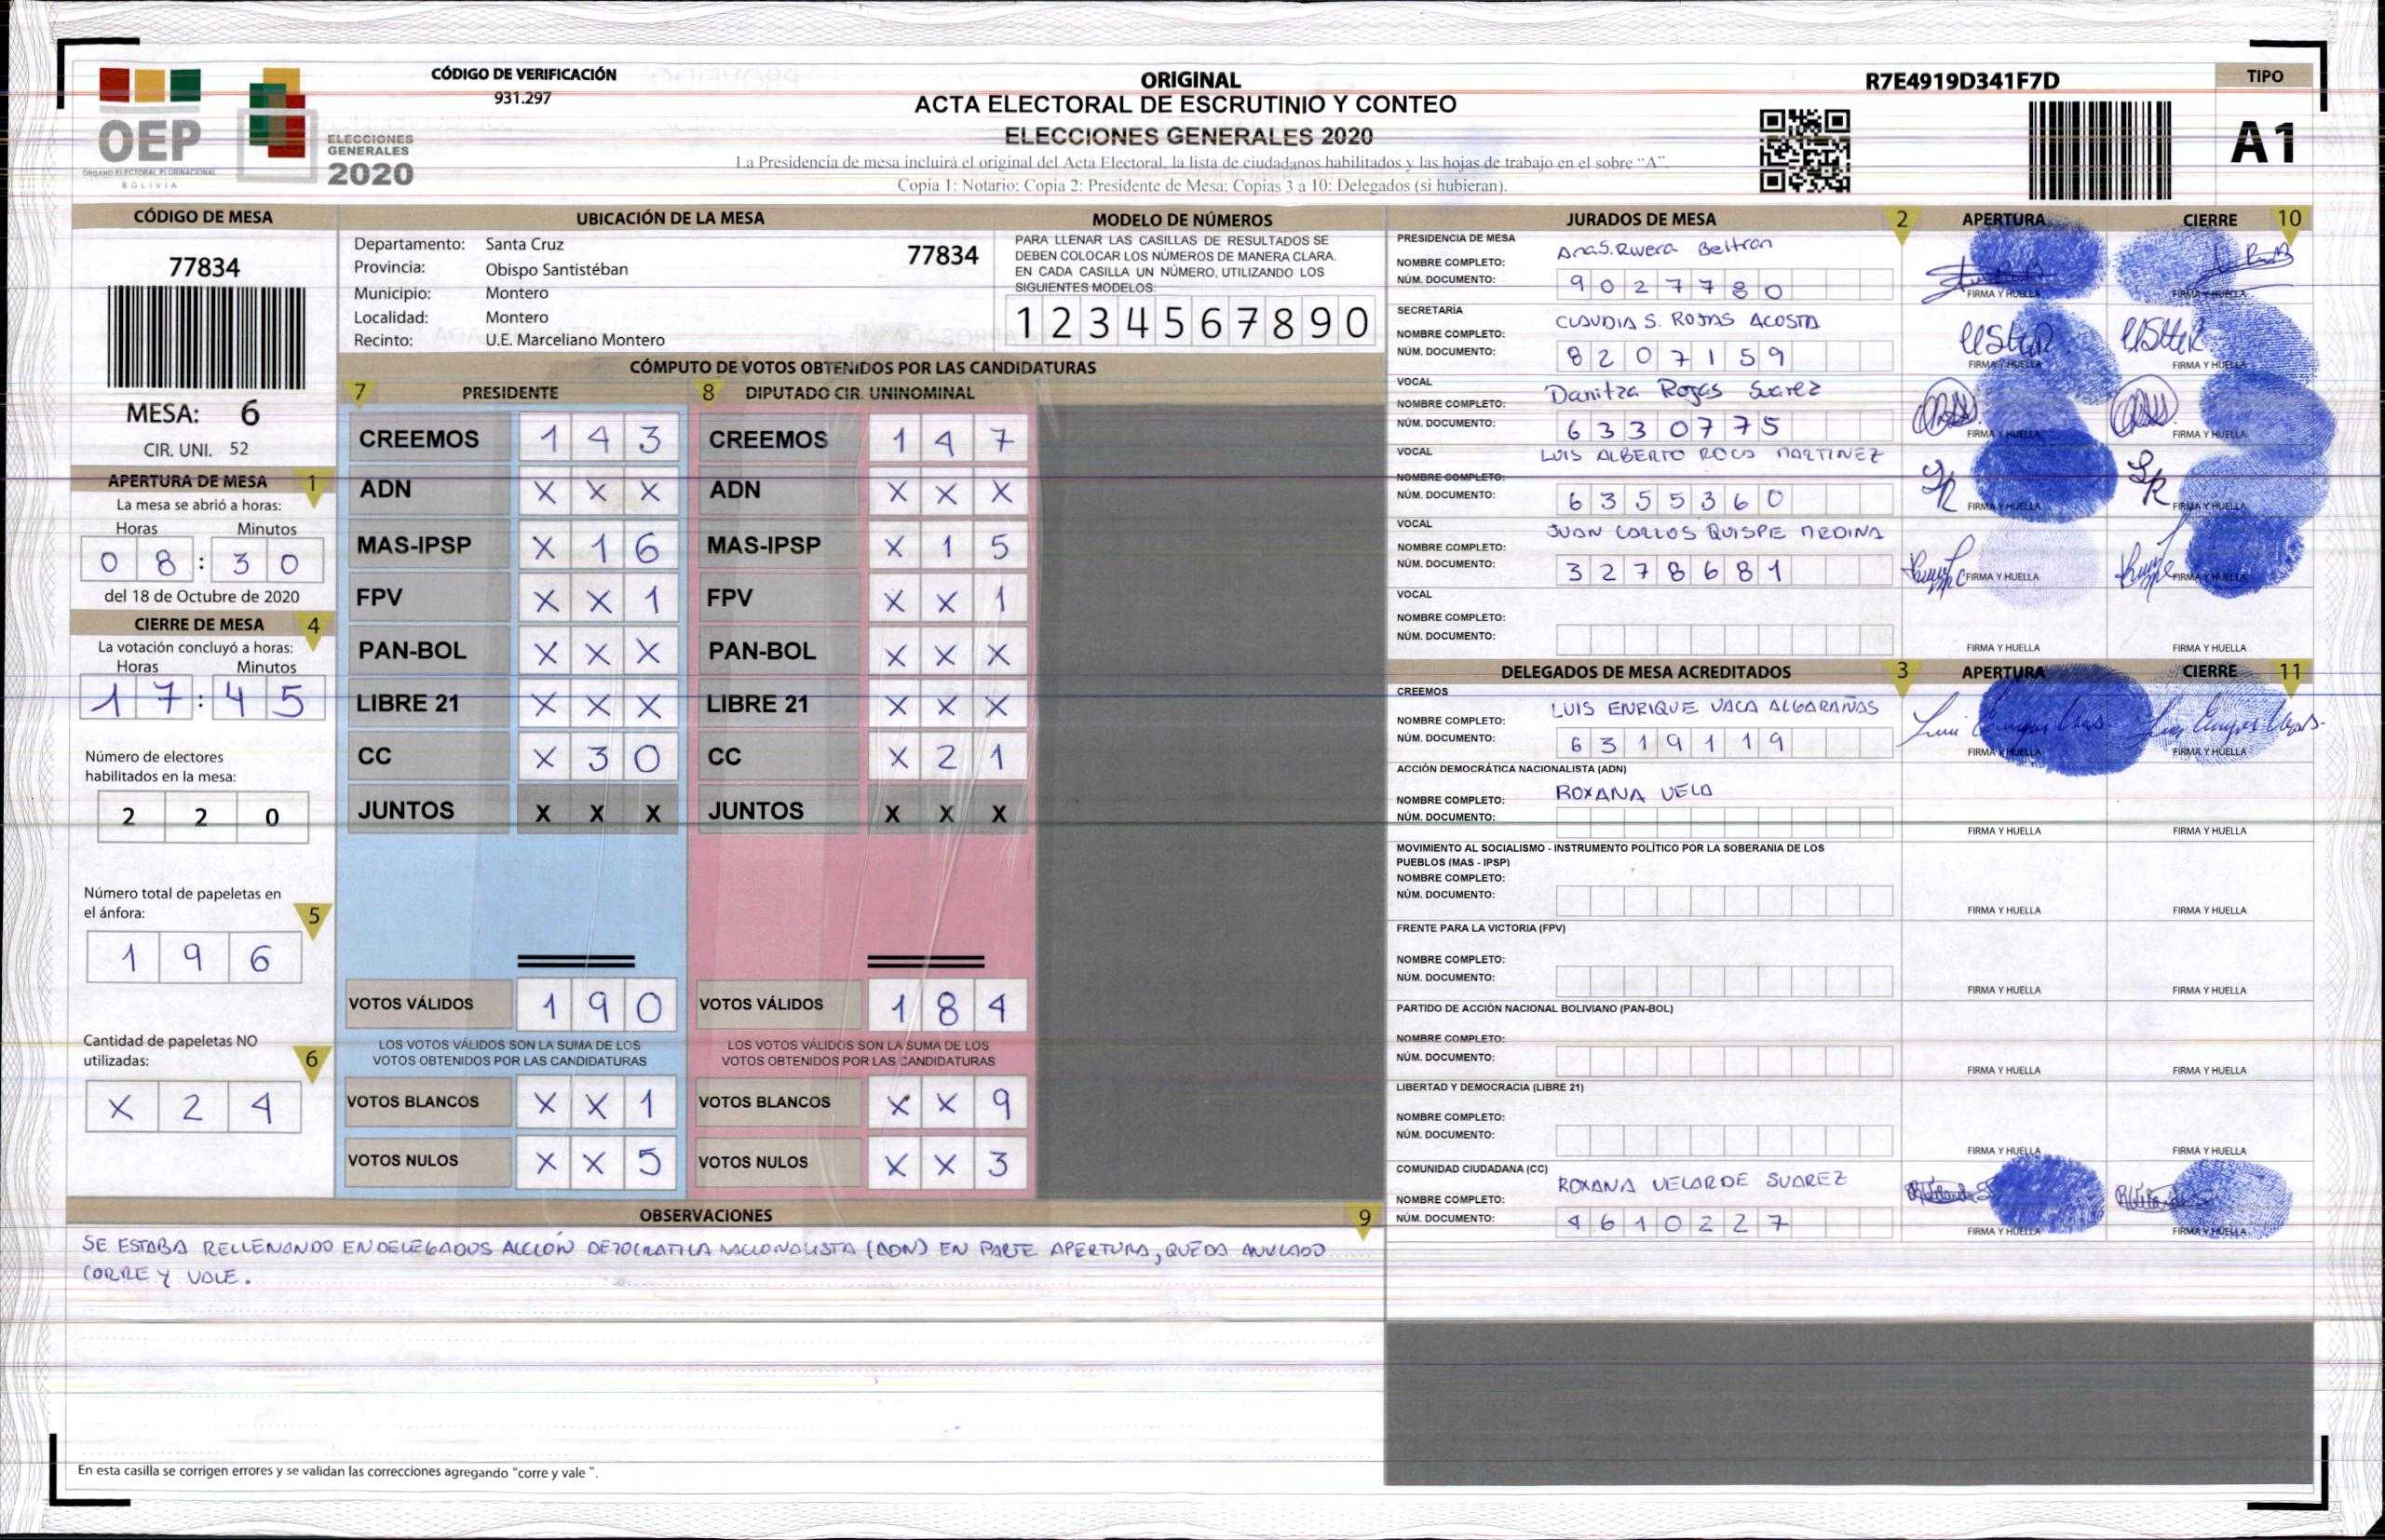 OEP
ÓRGANO ELECTORAL PLURINACIONAL
BOLIVIA
ELECCIONES
GENERALES
2020
CÓDIGO DE VERIFICACIÓN
931.297
ORIGINAL
ACTA ELECTORAL DE ESCRUTINIO Y CONTEO
ELECCIONES GENERALES 2020
La Presidencia de mesa incluirá el original del Acta Electoral, la lista de ciudadanos habilitados y las hojas de trabajo en el sobre "A".
Copia 1: Notario; Copia 2: Presidente de Mesa; Copias 3 a 10: Delegados (si hubieran).
R7E4919D341F7D
TIPO
A1
CÓDIGO DE MESA
77834
MESA: 6
CIR. UNI. 52
APERTURA DE MESA 1
La mesa se abrió a horas:
Horas Minutos
0 8 : 3 0
del 18 de Octubre de 2020
CIERRE DE MESA 4
La votación concluyó a horas:
Horas Minutos
1 7 : 4 5
Número de electores
habilitados en la mesa:
2 2 0
Número total de papeletas en
el ánfora: 5
1 9 6
Cantidad de papeletas NO
utilizadas: 6
X 2 4
UBICACIÓN DE LA MESA
Departamento: Santa Cruz
77834
Provincia: Obispo Santistéban
Municipio: Montero
Localidad: Montero
Recinto: U.E. Marceliano Montero
MODELO DE NÚMEROS
PARA LLENAR LAS CASILLAS DE RESULTADOS SE
DEBEN COLOCAR LOS NÚMEROS DE MANERA CLARA.
EN CADA CASILLA UN NÚMERO, UTILIZANDO LOS
SIGUIENTES MODELOS:
1 2 3 4 5 6 7 8 9 0
CÓMPUTO DE VOTOS OBTENIDOS POR LAS CANDIDATURAS
7 PRESIDENTE 8 DIPUTADO CIR. UNINOMINAL
CREEMOS 1 4 3 CREEMOS 1 4 7
ADN X X X ADN X X X
MAS-IPSP X 1 6 MAS-IPSP X 1 5
FPV X X 1 FPV X X 1
PAN-BOL X X X PAN-BOL X X X
LIBRE 21 X X X LIBRE 21 X X X
CC X 3 0 CC X 2 1
JUNTOS X X X JUNTOS X X X
VOTOS VÁLIDOS 1 9 0 VOTOS VÁLIDOS 1 8 4
LOS VOTOS VÁLIDOS SON LA SUMA DE LOS LOS VOTOS VÁLIDOS SON LA SUMA DE LOS
VOTOS OBTENIDOS POR LAS CANDIDATURAS VOTOS OBTENIDOS POR LAS CANDIDATURAS
VOTOS BLANCOS X X 1 VOTOS BLANCOS X X 9
VOTOS NULOS X X 5 VOTOS NULOS X X 3
OBSERVACIONES 9
SE ESTABA RELLENANDO EN DELEGADOS ACCIÓN DEMOCRATICA NACIONALISTA (ADN) EN PARTE APERTURA, QUEDA ANULADO
CORRE Y VALE.
En esta casilla se corrigen errores y se validan las correcciones agregando "corre y vale ".
JURADOS DE MESA 2 APERTURA CIERRE 10
PRESIDENCIA DE MESA
NOMBRE COMPLETO: Ana S. Rivera Beltran
NÚM. DOCUMENTO: 9 0 2 7 7 8 0
FIRMA Y HUELLA FIRMA Y HUELLA
SECRETARÍA
NOMBRE COMPLETO: CLAUDIA S. ROJAS ACOSTA
NÚM. DOCUMENTO: 8 2 0 7 1 5 9
FIRMA Y HUELLA FIRMA Y HUELLA
VOCAL
NOMBRE COMPLETO: Danitza Rojas Suarez
NÚM. DOCUMENTO: 6 3 3 0 7 7 5
FIRMA Y HUELLA FIRMA Y HUELLA
VOCAL
NOMBRE COMPLETO: LUIS ALBERTO ROCA MARTINEZ
NÚM. DOCUMENTO: 6 3 5 5 3 6 0
FIRMA Y HUELLA FIRMA Y HUELLA
VOCAL
NOMBRE COMPLETO: JUAN CARLOS QUISPE MEDINA
NÚM. DOCUMENTO: 3 2 7 8 6 8 1
FIRMA Y HUELLA FIRMA Y HUELLA
VOCAL
NOMBRE COMPLETO:
NÚM. DOCUMENTO:
FIRMA Y HUELLA FIRMA Y HUELLA
DELEGADOS DE MESA ACREDITADOS 3 APERTURA CIERRE 11
CREEMOS
NOMBRE COMPLETO: LUIS ENRIQUE VACA ALGARAÑAS
NÚM. DOCUMENTO: 6 3 1 9 1 1 9
FIRMA Y HUELLA FIRMA Y HUELLA
ACCIÓN DEMOCRÁTICA NACIONALISTA (ADN)
NOMBRE COMPLETO: ROXANA VELA
NÚM. DOCUMENTO:
FIRMA Y HUELLA FIRMA Y HUELLA
MOVIMIENTO AL SOCIALISMO - INSTRUMENTO POLÍTICO POR LA SOBERANIA DE LOS
PUEBLOS (MAS - IPSP)
NOMBRE COMPLETO:
NÚM. DOCUMENTO:
FIRMA Y HUELLA FIRMA Y HUELLA
FRENTE PARA LA VICTORIA (FPV)
NOMBRE COMPLETO:
NÚM. DOCUMENTO:
FIRMA Y HUELLA FIRMA Y HUELLA
PARTIDO DE ACCIÓN NACIONAL BOLIVIANO (PAN-BOL)
NOMBRE COMPLETO:
NÚM. DOCUMENTO:
FIRMA Y HUELLA FIRMA Y HUELLA
LIBERTAD Y DEMOCRACIA (LIBRE 21)
NOMBRE COMPLETO:
NÚM. DOCUMENTO:
FIRMA Y HUELLA FIRMA Y HUELLA
COMUNIDAD CIUDADANA (CC)
NOMBRE COMPLETO: ROXANA VELARDE SUAREZ
NÚM. DOCUMENTO: 4 6 1 0 2 2 7
FIRMA Y HUELLA FIRMA Y HUELLA